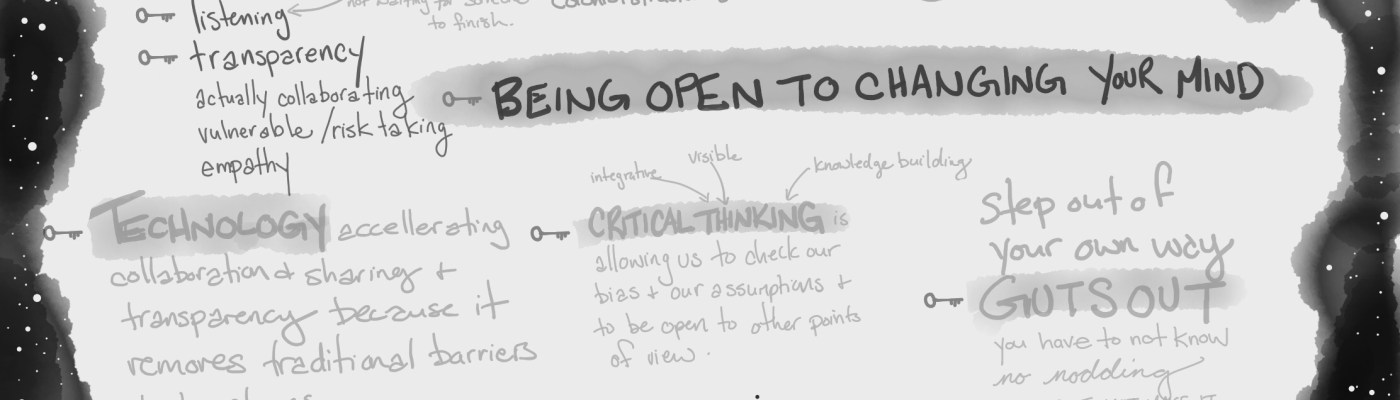 listening
to finish.
transparency
actually collaborating
vulnerable / risk taking
empathy
BEING OPEN TO CHANGING YOUR MIND
TECHNOLOGY accellerating
collaboration & sharing +
transparency because it
remores traditional barriers
integrative
visible
knowledge building
CRITICAL THINKING is
allowing us to check our
bias + our assumptions +
to be open to other points
of view.
Step out of
your own way
GUTS OUT
you have to not know
no nodding